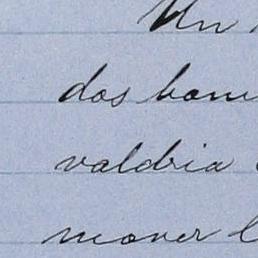 Un
dos
valdria
mover